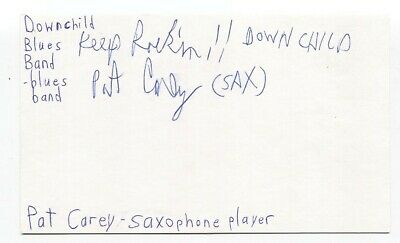 Downchild
Blues
Band
-blues
band
Keep Rock'in,!! DOWNCHILD
Pat Carey (SAX)
Pat Carey - saxophone player